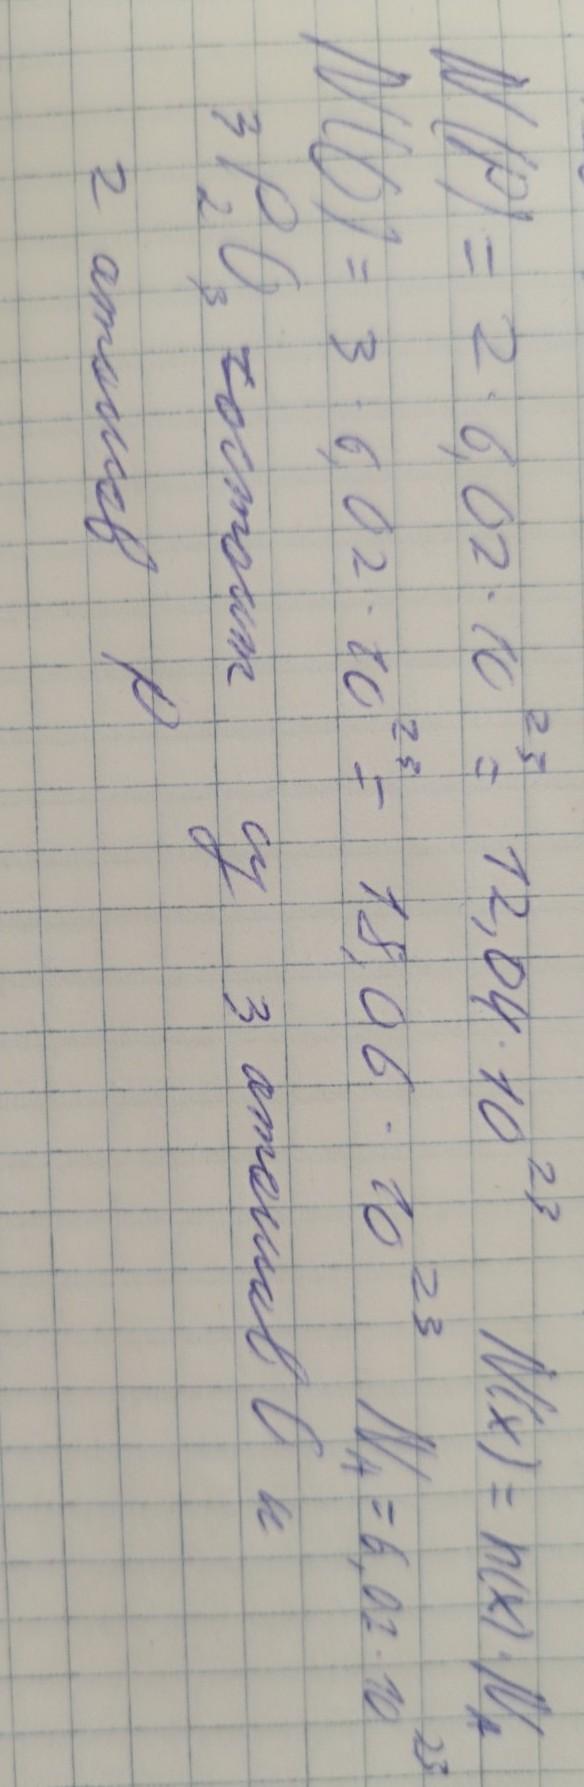 N(P) = 2 · 6,02 · 10²³ = 12,04 · 10²³ N(x) = n(x) · N_A
N(O) = 3 · 6,02 · 10²³ = 18,06 · 10²³ N_A = 6,02 · 10²³
³P₂O₃ состоит из 3 атомов O и
2 атомов P